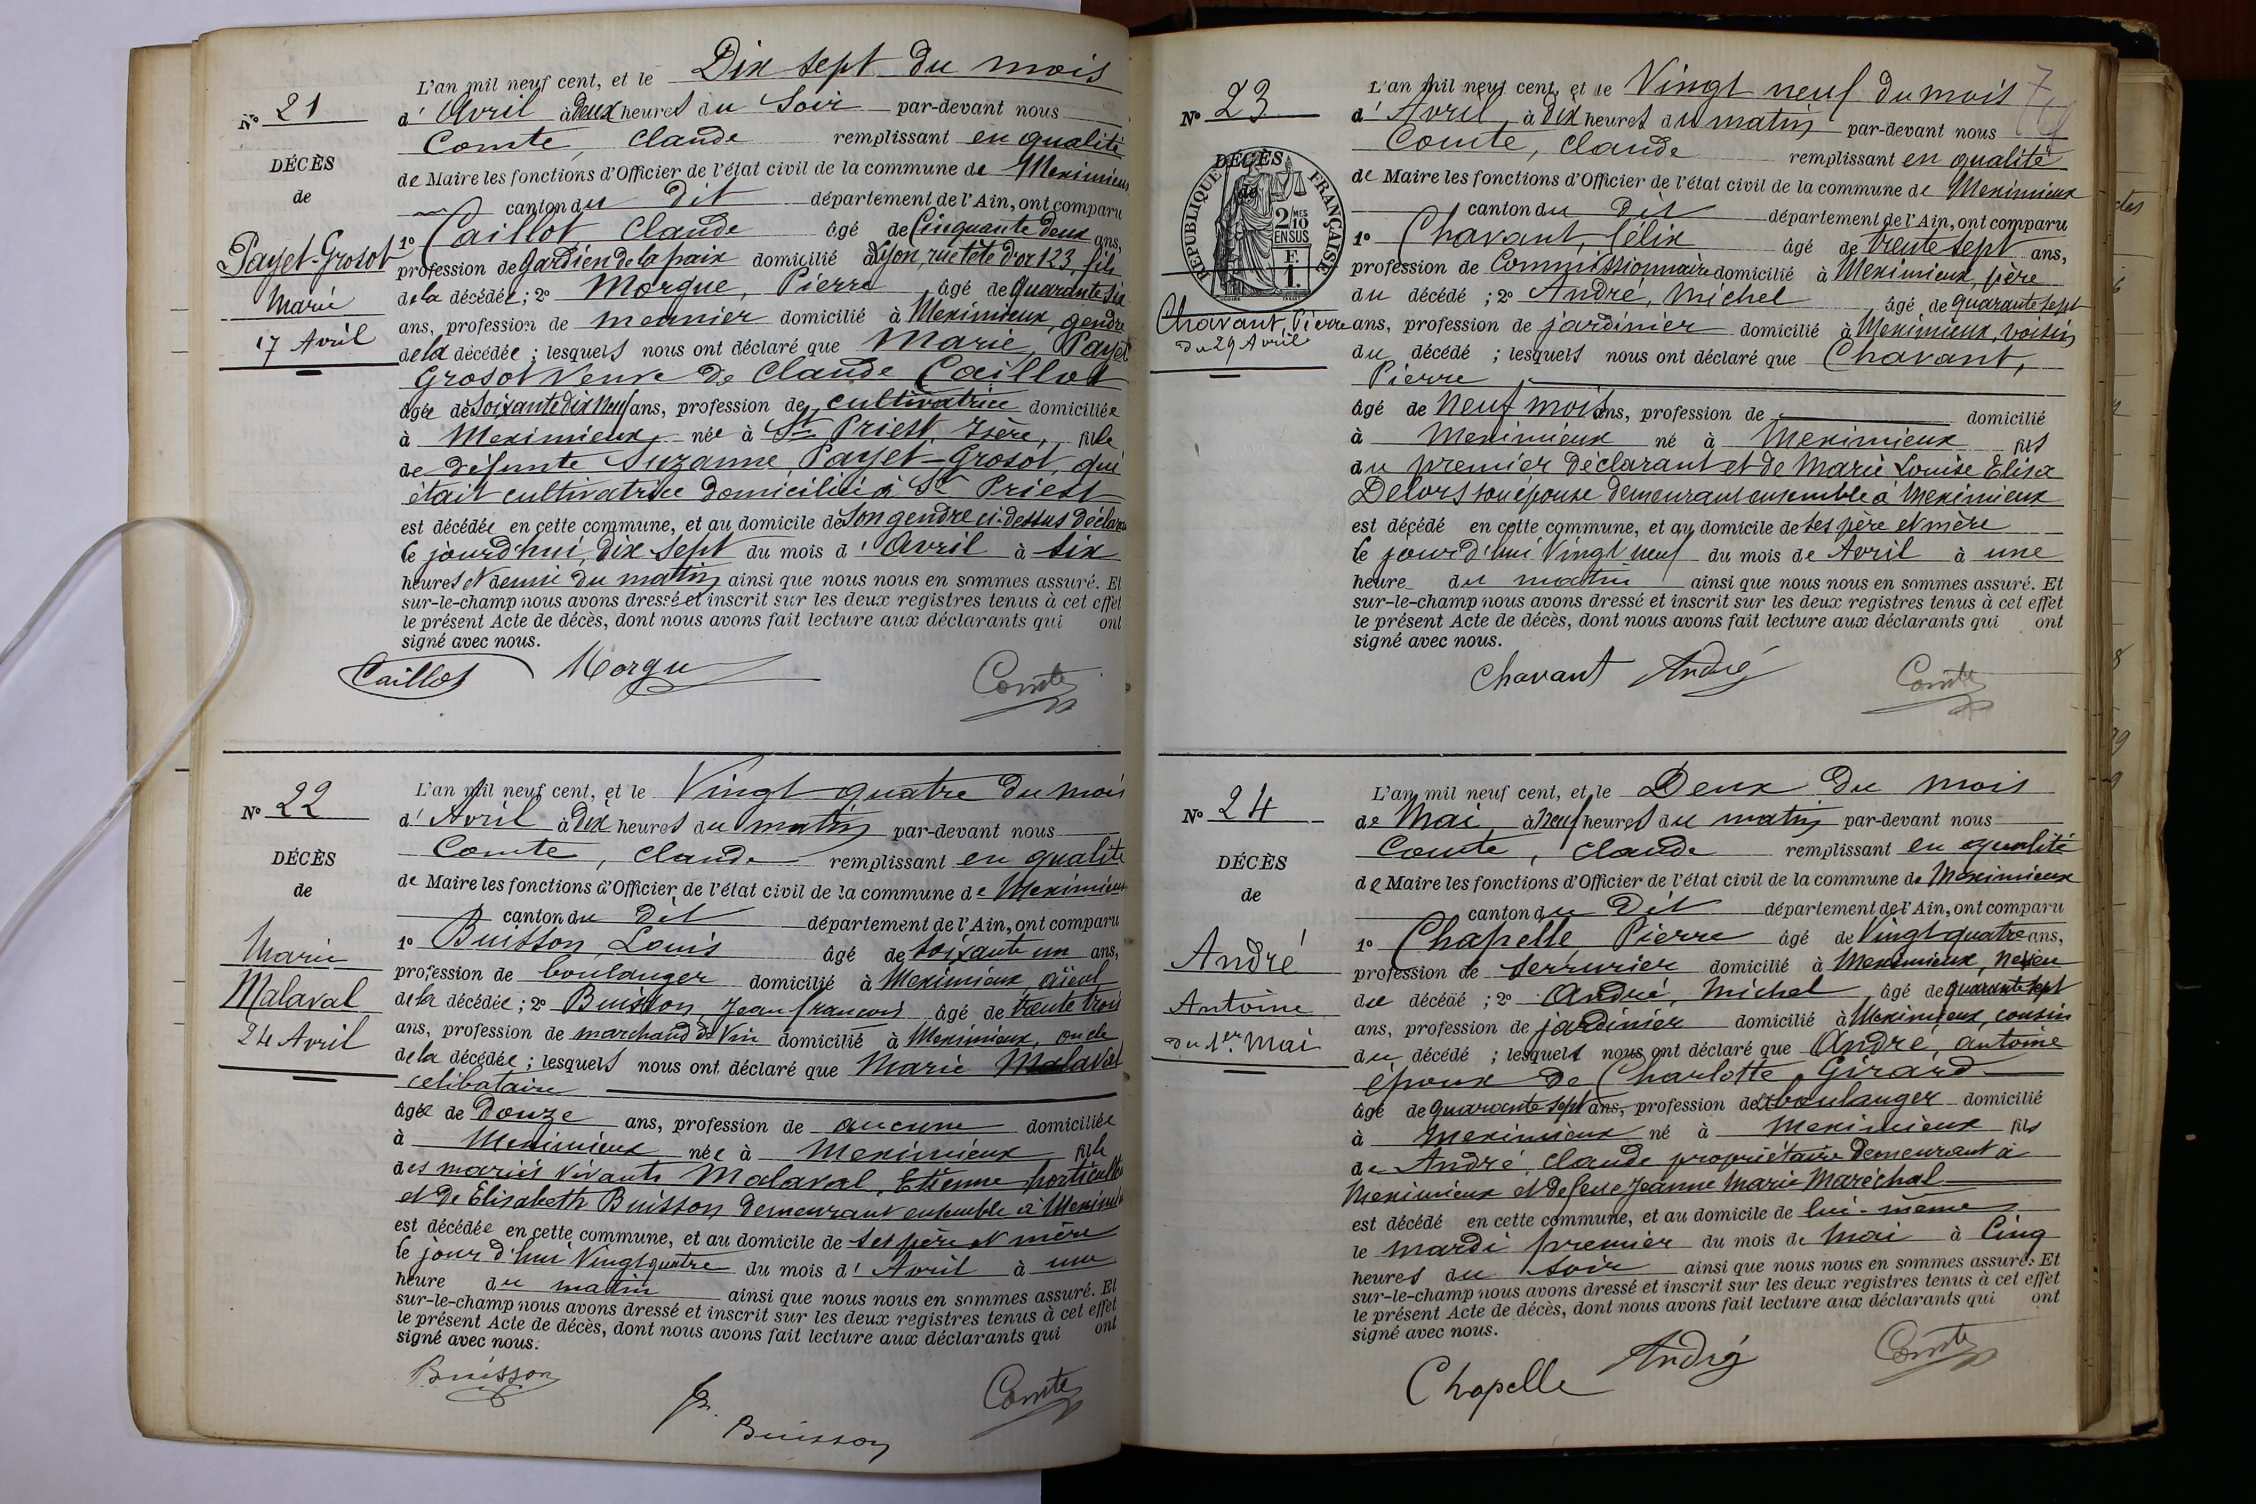 L'an mil neuf cent, et le Dix sept du mois
N° 21
d'Avril à deux heures du Soir par-devant nous
Comte, Claude remplissant en qualité
DÉCÈS
de Maire les fonctions d'Officier de l'état civil de la commune de Meximieux
de
canton du dit département de l'Ain, ont comparu
1° Caillot Claude âgé de Cinquante deux ans,
Payet-Grosot
profession de gardien de la paix domicilié à Lyon, rue tête d'or 123, fils
Marie
de la décédée; 2° Morgue, Pierre âgé de quarante six
17 Avril
ans, profession de meunier domicilié à Meximieux, gendre
de la décédée; lesquels nous ont déclaré que Marie Payet
Grosot Veuve de Claude Caillot
âgée de Soixante dix neuf ans, profession de cultivatrice domiciliée
à Meximieux née à St Priest, Isère, fille
de défunte Suzanne Payet-Grosot, qui
était cultivatrice domiciliée à St Priest
est décédée en cette commune, et au domicile de Son gendre ci-dessus déclara
le jourd'hui, dix sept du mois d'Avril à six
heures et demie du matin ainsi que nous nous en sommes assuré. Et
sur-le-champ nous avons dressé et inscrit sur les deux registres tenus à cet effet
le présent Acte de décès, dont nous avons fait lecture aux déclarants qui ont
signé avec nous.
Caillot Morgue Comte
L'an mil neuf cent, et le Vingt quatre du mois
N° 22
d'Avril à dix heures du matin par-devant nous
Comte, Claude remplissant en qualité
DÉCÈS
de Maire les fonctions d'Officier de l'état civil de la commune de Meximieux
de
canton du dit département de l'Ain, ont comparu
1° Buisson Louis âgé de soixante un ans,
Marie
profession de boulanger domicilié à Meximieux, aïeul
Malaval
de la décédée; 2° Buisson, Jean françois âgé de trente trois
24 Avril
ans, profession de marchand de Vin domicilié à Meximieux, oncle
de la décédée; lesquels nous ont déclaré que Marie Malaval
célibataire
âgée de douze ans, profession de aucune domiciliée
à Meximieux née à Meximieux fille
des mariés vivants Malaval, Etienne horticulte
et de Elisabeth Buisson demeurant ensemble à Meximie
est décédée en cette commune, et au domicile de ses père et mère
le jour d'hui Vingt quatre du mois d'Avril à une
heure du matin ainsi que nous nous en sommes assuré. Et
sur-le-champ nous avons dressé et inscrit sur les deux registres tenus à cet effet
le présent Acte de décès, dont nous avons fait lecture aux déclarants qui ont
signé avec nous.
Buisson Comte
Buisson
L'an mil neuf cent, et le Vingt neuf du mois 7
N° 23
d'Avril, à dix heures du matin par-devant nous
Comte, Claude remplissant en qualité
DÉCÈS
de
RÉPUBLIQUE FRANÇAISE
2/10 MES EN SUS
F. 1.
de Maire les fonctions d'Officier de l'état civil de la commune de Meximieux
canton du dit département de l'Ain, ont comparu
1° Chavant, félix âgé de trente sept ans,
profession de Commissionnaire domicilié à Meximieux, père
du décédé; 2° André, Michel âgé de quarante sept
Chavant, Pierre
du 29 Avril
ans, profession de jardinier domicilié à Meximieux, voisin
du décédé; lesquels nous ont déclaré que Chavant,
Pierre
âgé de Neuf mois ans, profession de domicilié
à Meximieux né à Meximieux fils
du premier déclarant et de Marie Louise Elisa
Delors son épouse demeurant ensemble à Meximieux
est décédé en cette commune, et au domicile de ses père et mère
le jour d'hui Vingt neuf du mois de Avril à une
heure du matin ainsi que nous nous en sommes assuré. Et
sur-le-champ nous avons dressé et inscrit sur les deux registres tenus à cet effet
le présent Acte de décès, dont nous avons fait lecture aux déclarants qui ont
signé avec nous.
Chavant André Comte
L'an mil neuf cent, et le Deux du mois
N° 24
de Mai, à neuf heures du matin par-devant nous
Comte, Claude remplissant en qualité
DÉCÈS
de Maire les fonctions d'Officier de l'état civil de la commune de Meximieux
de
canton du dit département de l'Ain, ont comparu
1° Chapelle Pierre âgé de Vingt quatre ans,
André
profession de serrurier domicilié à Meximieux, neveu
Antoine
du décédé; 2° André, Michel âgé de quarante sept
du 1er Mai
ans, profession de jardinier domicilié à Meximieux, cousin
du décédé; lesquels nous ont déclaré que André, antoine
époux de Charlotte Girard
âgé de quarante sept ans, profession de boulanger domicilié
à Meximieux né à Meximieux fils
de André, Claude propriétaire demeurant à
Meximieux et de feue Jeanne Marie Maréchal
est décédé en cette commune, et au domicile de lui-même
le mardi premier du mois de Mai à Cinq
heures du soir ainsi que nous nous en sommes assuré. Et
sur-le-champ nous avons dressé et inscrit sur les deux registres tenus à cet effet
le présent Acte de décès, dont nous avons fait lecture aux déclarants qui ont
signé avec nous.
Chapelle André Comte